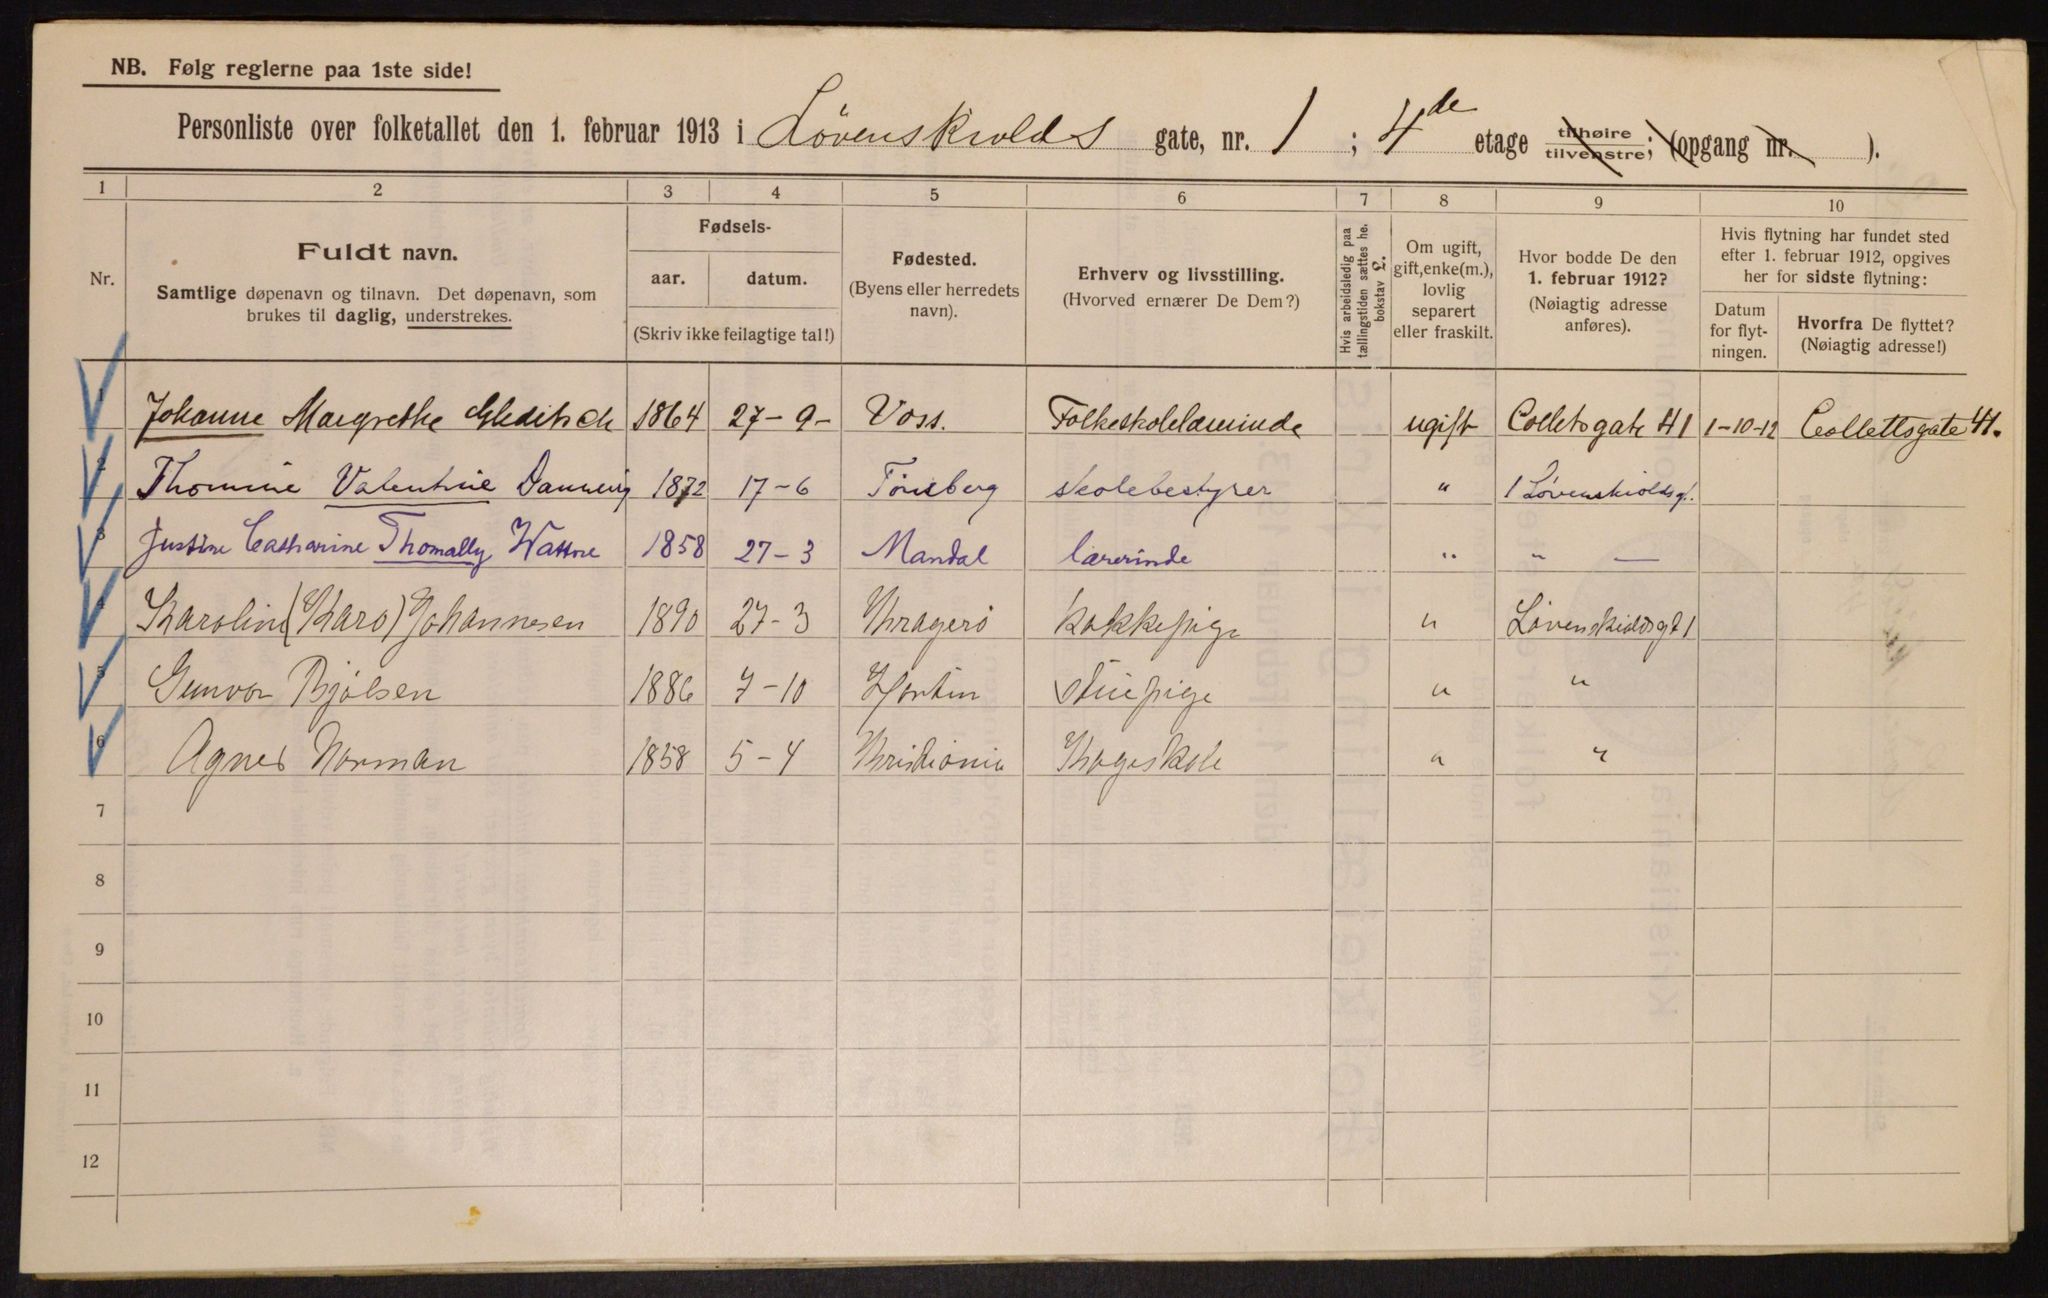 NB. Følg reglerne paa 1ste side!
Personliste over folketallet den 1. februar 1913 i Løvenskiolds gate, nr. 1 ; 4de etage tilhøire tilvenstre; (opgang nr. ).
1 2 3 4 5 6 7 8 9 10
Nr.
Fuldt navn.
Samtlige døpenavn og tilnavn. Det døpenavn, som
brukes til daglig, understrekes.
Fødsels-
aar. datum.
(Skriv ikke feilagtige tal!)
Fødested.
(Byens eller herredets
navn).
Erhverv og livsstilling.
(Hvorved ernærer De Dem?)
Hvis arbeidsledig paa
tællingstiden sættes he.
bokstav L.
Om ugift,
gift, enke(m.),
lovlig
separert
eller fraskilt.
Hvor bodde De den
1. februar 1912?
(Nøiagtig adresse
anføres).
Hvis flytning har fundet sted
efter 1. februar 1912, opgives
her for sidste flytning:
Datum
for flyt-
ningen.
Hvorfra De flyttet?
(Nøiagtig adresse!)
1 Johanne Margrethe Gleditsch 1864 27-9- Voss. Folkeskolelærerinde ugift Colletsgate 41 1-10-12 Collettsgate 41.
2 Thomine Valentine Dannevig 1872 17-6 Tönsberg skolebestyrer " 1 Løvenskioldsgt.
3 Justine Catharine Thomally Wattne 1858 27-3 Mandal lærerinde " " —
4 Karoline (Karo) Johannesen 1890 27-3 Kragerö kokkepige " Løvenskioldsgt 1
5 Gunvor Bjølsen 1886 7-10 Horten stuepige " "
6 Agnes Norman 1858 5-4 Kristiania Kogeskole " "
7
8
9
10
11
12